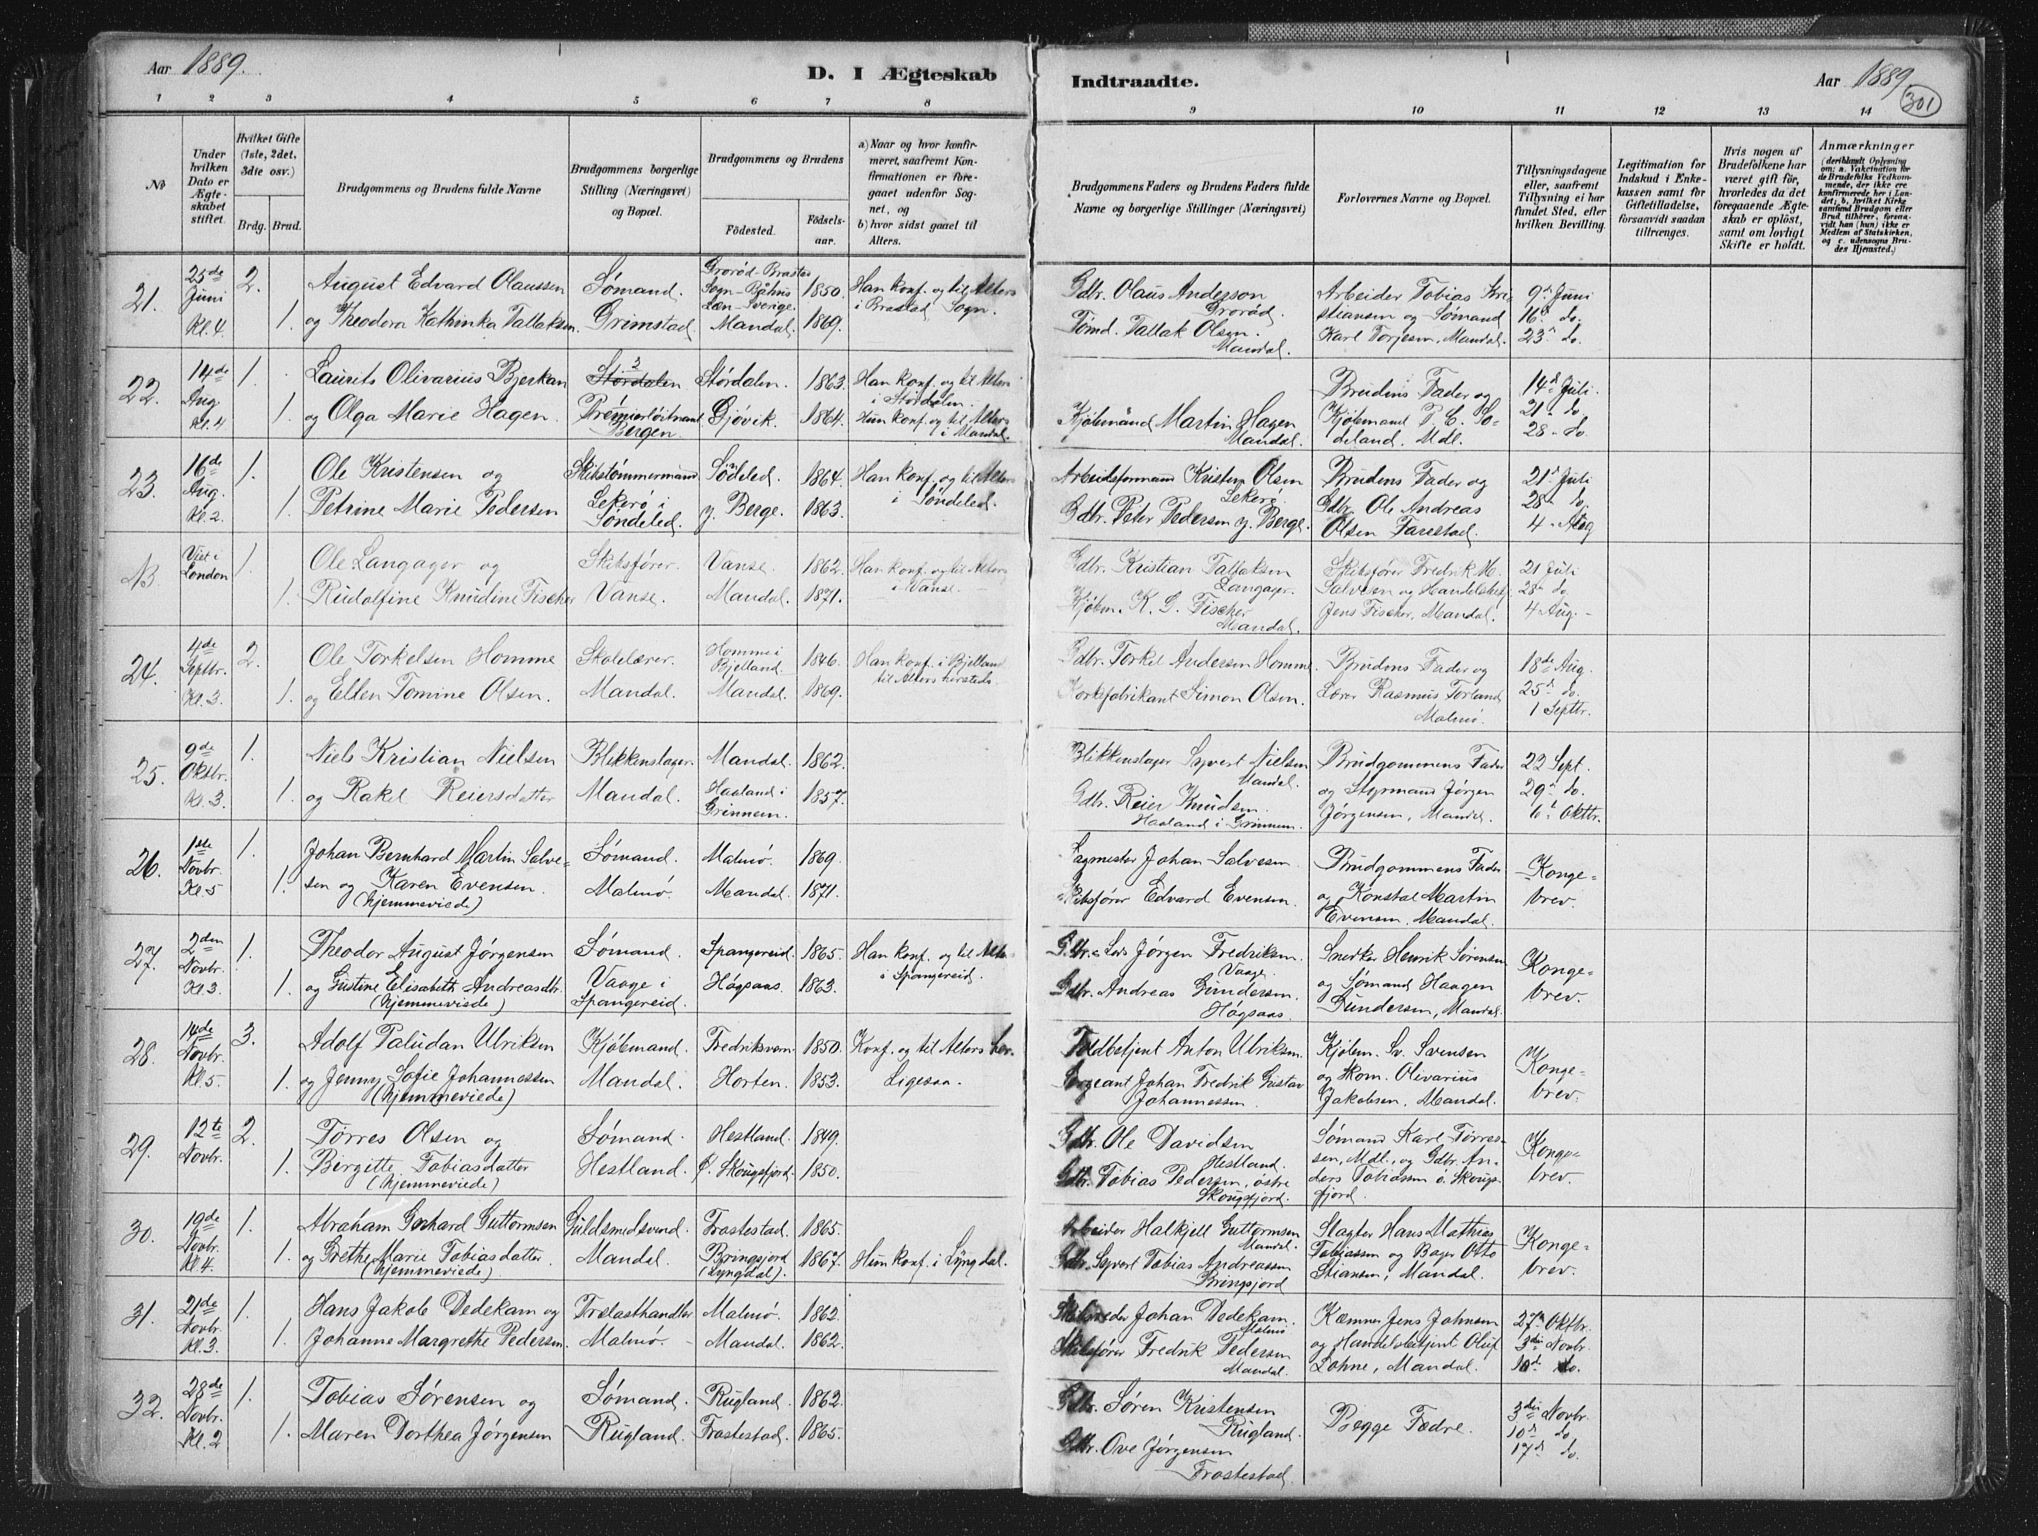 Aar 1889.
D. I Ægteskab
Indtraadte.
Aar 1889
301
1 2 3 4 5 6 7 8 9 10 11 12 13 14
No
Under hvilken Dato er Ægteskabet stiftet.
Hvilket Gifte (1ste, 2det, 3die osv.)
Brdg. Brud.
Brudgommens og Brudens fulde Navne
Brudgommens borgerlige Stilling (Næringsvei) og Bopæl.
Brudgommens og Brudens
Födested.
Födselsaar.
a) Naar og hvor konfirmeret, saafremt Konfirmationen er foregaaet udenfor Sognet, og
b) hvor sidst gaaet til Alters.
Brudgommens Faders og Brudens Faders fulde Navne og borgerlige Stillinger (Næringsvei)
Forlovernes Navne og Bopæl.
Tillysningsdagene eller, saafremt Tillysning ei har fundet Sted, efter hvilken Bevilling.
Legitimation for Indskud i Enkekassen samt for Giftetilladelse, forsaavidt saadan tiltrænges.
Hvis nogen af Brudefolkene har været gift för, hvorledes da det foregaaende Ægteskab er oplöst, samt om lovligt Skifte er holdt.
Anmærkninger
21. 25de Juni Kl. 4 2. 1.
August Edvard Olaussen
og Theodora Kathinka Tallaksen
Sømand.
Grimstad
Grorød-Brastad Sogn-Båhus Læn-Sverige. 1850.
Mandal. 1869.
Han konf. og til Alters i Brastad Sogn.
Gdbr. Olaus Anderson Grorød.
Tømd. Tallak Olsen. Mandal.
Arbeider Tobias Kristiansen og Sømand Karl Torjesen, Mandal.
9d Juni
16d do.
23d do.
22. 14de Aug. Kl. 4 1. 1.
Laurits Olivarius Bjerkan
og Olga Marie Hagen.
Stordalen
Premierløitnant Bergen.
Stördalen. 1863.
Gjøvik. 1864.
Han konf. og til Alters i Stördalen.
Hun konf. og til Alters i Mandal.
Kjøbmand Martin Hagen Mandal.
Brudens Fader og Kjøbmand P. C. Sodeland. Mdl.
14d Juli.
21- do.
28- do.
23. 16de Aug. Kl. 2. 1. 1.
Ole Kristensen og
Petrine Marie Pedersen
Skibstømmermand
Lekerö i Söndeled.
Södeled. 1864.
y. Berge. 1863.
Han konf. og til Alters i Söndeled.
Arbeidsformand Kristen Olsen Lekerö.
Gdbr. Peter Pedersen y. Berge.
Brudens Fader og Gdbr. Ole Andreas Olsen Farestad.
21d Juli
28d do.
4- Aug
N3 Viet i London 1. 1.
Ole Langager og
Rudolfine Knudine Fischer
Skibsfører.
Vanse.
Vanse. 1862.
Mandal. 1871.
Han konf. og til Alters i Vanse.
Gdbr. Kristian Tallaksen Langager.
Kjøbm. K. G. Fischer Mandal.
Skibsfører Fredrik M. Salvesen og Handelsbet. Jens Fischer, Mandal.
21 Juli
28d do
4 Aug.
24. 4de Septbr. Kl. 3. 2. 1.
Ole Torkelsen Homme
og Ellen Tomine Olsen.
Skolelærer.
Mandal.
Homme i Bjelland. 1846.
Mandal. 1869.
Han konf. i Bjelland til Alters hersteds.
Gdbr. Torkel Andersen Homme.
Korkefabrikant Simon Olsen.
Brudens Fader og Lærer Rasmus Torland Malmö.
18de Aug.
25d do.
1 Septbr.
25. 9de Oktbr. Kl. 3. 1. 1.
Niels Kristian Nielsen
og Rakel Reiersdatter
Blikkenslager.
Mandal.
Mandal. 1862.
Haaland i Grinnem. 1857.
Blikkenslager Syvert Nielsen Mandal.
Gdbr. Reier Knudsen. Haaland i Grinnem.
Brudgommens Fader og Styrmand Jørgen Jørgensen, Mandal.
22 Sept.
29d do.
6d Oktbr.
26. 1ste Novbr. Kl. 5 1. 1.
Johan Bernhard Martin Salvesen og Karen Evensen.
(hjemmeviede)
Sømand.
Malmö.
Malmö. 1869.
Mandal. 1871.
Johan Salvesen
Skibsfører Edvard Evensen.
Brudgommens Fader og Konstal Martin Evensen, Mandal.
Kongebrev.
27. 2den Novbr. Kl. 3. 1. 1.
Theodor August Jørgensen
og Gustine Elisabeth Andreasdtr.
(hjemmeviede)
Sømand.
Vaage i Spangereid.
Spangereid. 1865.
Høgsaas. 1863.
Han konf. og til Alters i Spangereid.
Gdbr. & Lods Jørgen Fredriksen. Vaage.
Gdbr. Andreas Gundersen. Høgsaas.
Snerker Henrik Sørensen og Sømand Haagen Gundersen, Mandal.
Kongebrev.
28. 14de Novbr. Kl. 5. 3. 1.
Adolf Paludan Ulriksen
og Jenny Sofie Johannessen
(hjemmeviede)
Kjøbmand.
Mandal.
Fredriksværn. 1850.
Horten. 1853.
Konf. og til Alters her.
Ligesaa.
Toldbetjent Anton Ulriksen.
Sergeant Johan Fredrik Gustav Johannessen.
Kjøbm. Sv. Svensen og Skom. Olivarius Jakobsen, Mandal.
Kongebrev.
29. 12te Novbr. 2. 1.
Tørres Olsen og
Birgitte Tobiasdatter
(hjemmeviede)
Sømand.
Hestland.
Hestland. 1849.
ø. Skougsfjord. 1850.
Gdbr. Ole Davidsen Hestland.
Gdbr. Tobias Pedersen, østre Skougsfjord.
Sømand Karl Tørresen, Mdl., og Gdbr. Anders Tobiassen ö. Skougsfjord.
Kongebrev.
30. 19de Novbr. Kl. 4. 1. 1.
Abraham Gerhard Guttormsen
og Grethe Marie Tobiasdatter.
(hjemmeviede)
Guldsmedsvend.
Mandal.
Frostestad. 1865.
Bringsjord (Lyngdal). 1867.
Hun konf. i Lyngdal.
Arbeider Halkjell Guttormsen Mandal.
Gdbr. Syvert Tobias Andreassen Bringsjord
Slagter Hans Mathias Tobiassen og Bager Otto Stiansen, Mandal.
Kongebrev.
31. 21de Novbr. Kl. 3. 1. 1.
Hans Jakob Dedekam og
Johanne Margrethe Pedersen.
Trelasthandler
Malmö.
Malmö. 1862.
Mandal. 1862.
Skibsreder Johan Dedekam. Malmö
Skibsfører Fredrik Pedersen Mandal.
Kæmner Jens Johnsen og Handelsbetjent Oluf Lohne, Mandal.
27d Oktbr.
3die Novbr.
10d do.
32. 28de Novbr. Kl. 2 1. 1.
Tobias Sørensen og
Maren Dorthea Jørgensen
Sømand.
Rugland.
Rugland. 1862.
Frostestad. 1865.
Gdbr. Søren Kristensen Rugland.
Gdbr. Ove Jørgensen Frostestad.
Begge Fædre.
3die Novbr.
10d do.
17d do.